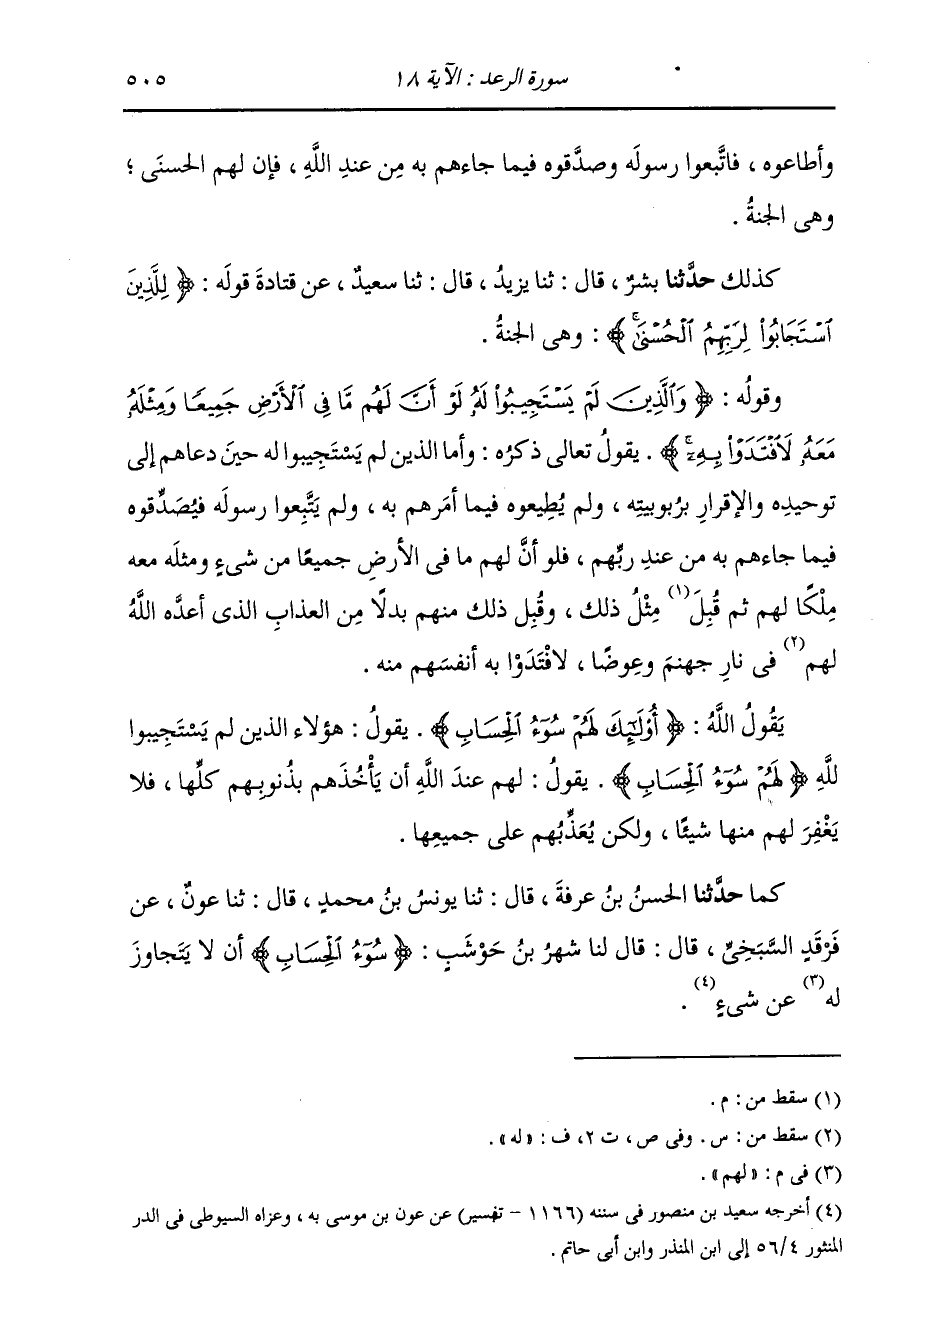 سورة الرعد : الآية ١٨
٥٠٥
وأطاعوه ، فاتَّبعوا رسولَه وصدَّقوه فيما جاءهم به مِن عندِ اللَّهِ ، فإن لهم الحسنَى ؛
وهى الجنةُ .
كذلك حدَّثنا بشرٌ ، قال : ثنا يزيدُ ، قال : ثنا سعيدٌ ، عن قتادةَ قولَه : ﴿ لِلَّذِينَ
ٱسۡتَجَابُواْ لِرَبِّهِمُ ٱلۡحُسۡنَىٰۚ ﴾ : وهى الجنةُ .
وقولُه : ﴿ وَٱلَّذِينَ لَمۡ يَسۡتَجِيبُواْ لَهُۥ لَوۡ أَنَّ لَهُم مَّا فِى ٱلۡأَرۡضِ جَمِيعًا وَمِثۡلَهُۥ
مَعَهُۥ لَٱفۡتَدَوۡاْ بِهِۦٓۚ ﴾ . يقولُ تعالى ذكرُه : وأما الذين لم يَسْتَجِيبوا له حينَ دعاهم إلى
توحيدِه والإقرارِ برُبوبيتِه ، ولم يُطِيعوه فيما أمَرهم به ، ولم يَتَّبِعوا رسولَه فيُصَدِّقوه
فيما جاءهم به من عندِ ربِّهم ، فلو أنَّ لهم ما فى الأرضِ جميعًا من شىءٍ ومثلَه معه
مِلْكًا لهم ثم قُبِلَ(١) مِثْلُ ذلك ، وقُبِل ذلك منهم بدلًا مِن العذابِ الذى أعدَّه اللَّهُ
لهم(٢) فى نارِ جهنمَ وعِوضًا ، لافْتَدَوْا به أنفسَهم منه .
يَقُولُ اللَّهُ : ﴿ أُوْلَٰٓئِكَ لَهُمۡ سُوٓءُ ٱلۡحِسَابِ ﴾ . يقولُ : هؤلاء الذين لم يَسْتَجِيبوا
للَّهِ ﴿ لَهُمۡ سُوٓءُ ٱلۡحِسَابِ ﴾ . يقولُ : لهم عندَ اللَّهِ أن يَأْخُذَهم بذُنوبِهم كلِّها ، فلا
يَغْفِرَ لهم منها شيئًا ، ولكن يُعَذِّبُهم على جميعِها .
كما حدَّثنا الحسنُ بنُ عرفةَ ، قال : ثنا يونسُ بنُ محمدٍ ، قال : ثنا عونٌ ، عن
فَرْقَدٍ السَّبَخِىِّ ، قال : قال لنا شهرُ بنُ حَوْشَبٍ : ﴿ سُوٓءُ ٱلۡحِسَابِ ﴾ أن لا يَتَجاوزَ
له(٣) عن شىءٍ(٤) .
(١) سقط من : م .
(٢) سقط من : س . وفى ص ، ت ٢، ف : «له» .
(٣) فى م : «لهم» .
(٤) أخرجه سعيد بن منصور فى سننه (١١٦٦ - تفسير) عن عون بن موسى به ، وعزاه السيوطى فى الدر
المنثور ٥٦/٤ إلى ابن المنذر وابن أبى حاتم .